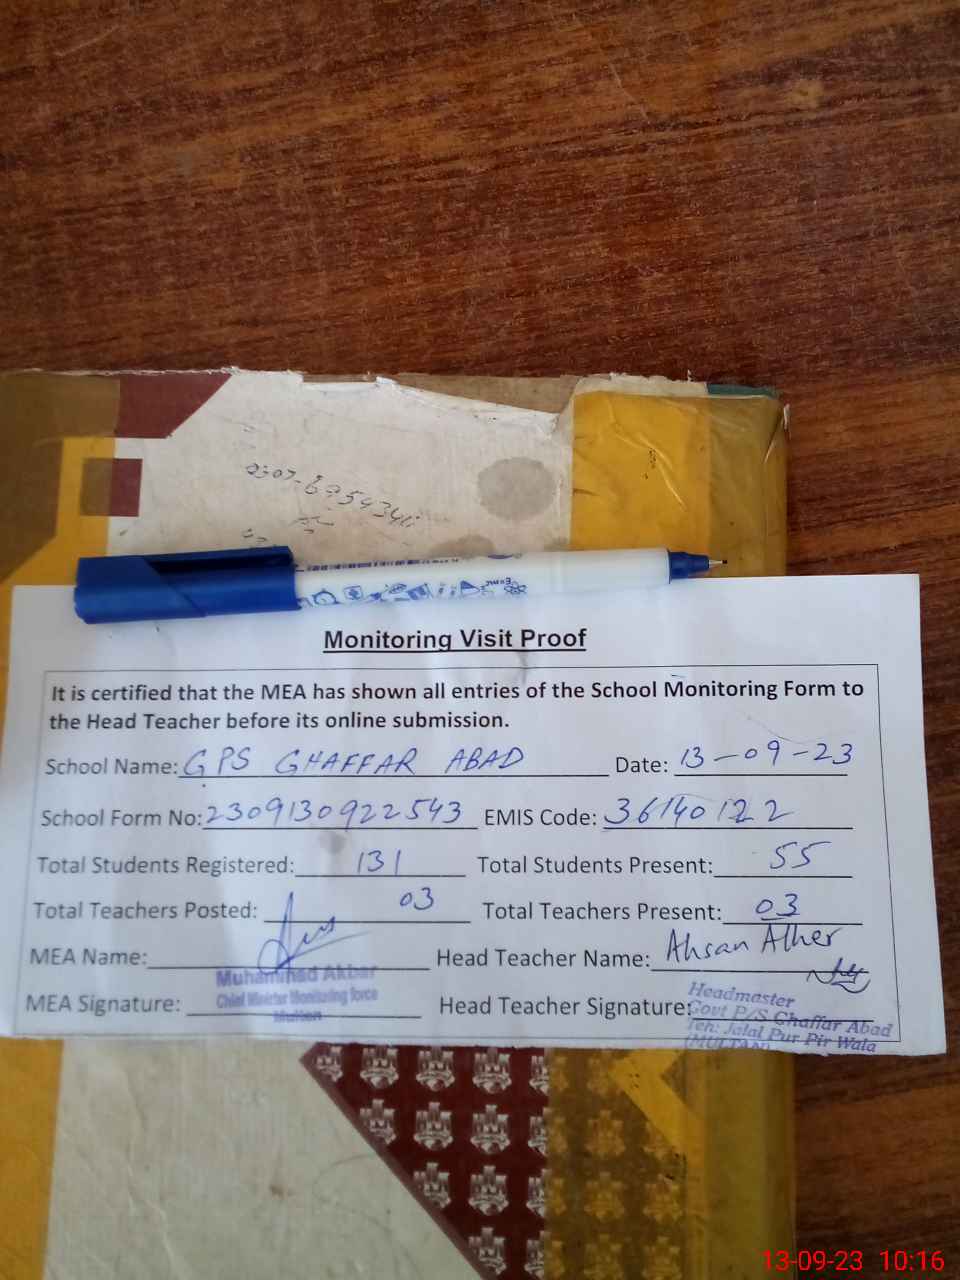 Monitoring Visit Proof
It is certified that the MEA has shown all entries of the School Monitoring Form to
the Head Teacher before its online submission.
School Name: GPS GHAFFAR ABAD Date: 13-09-23
School Form No: 2309130922543 EMIS Code: 36140122
Total Students Registered: 131 Total Students Present: 55
Total Teachers Posted: 03 Total Teachers Present: 03
MEA Name: Head Teacher Name: Ahsan Ather
Muhammad Akbar
Chief Minister Monitoring force
Multan
MEA Signature: Head Teacher Signature:
Headmaster
Govt P/S Ghaffar Abad
Teh: Jalal Pur Pir Wala
(MULTAN)
13-09-23 10:16